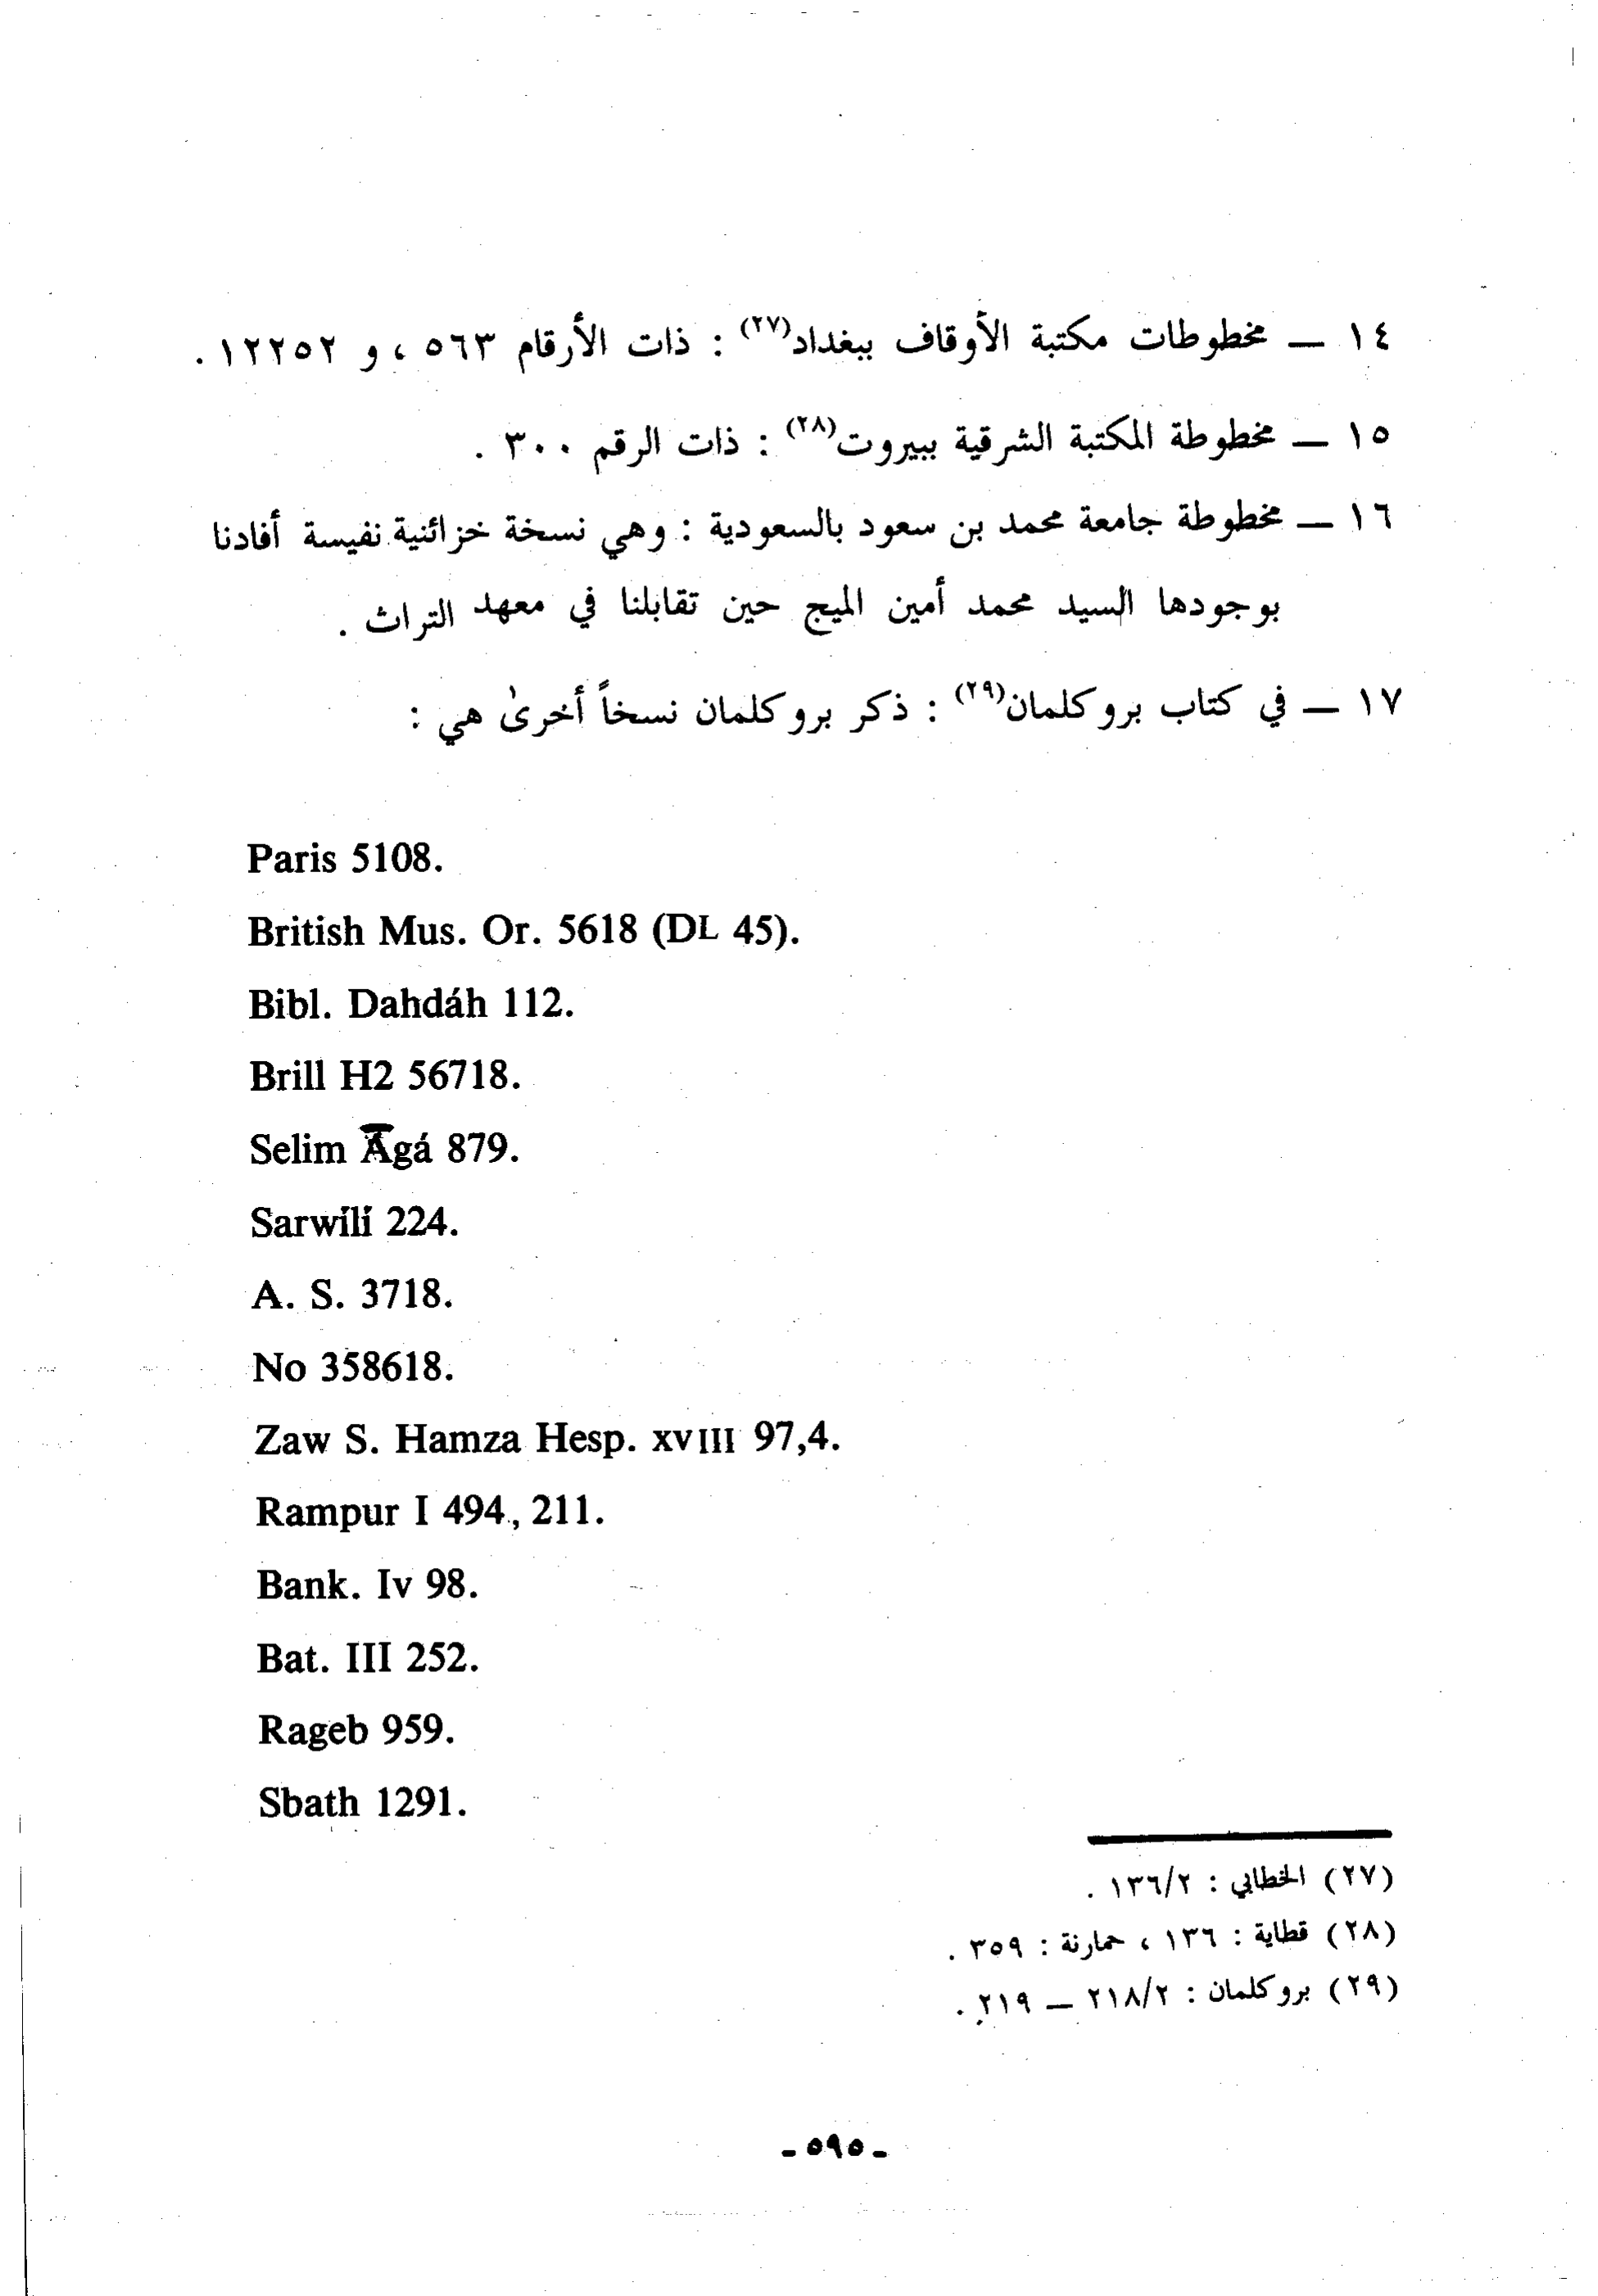 ١٤ — مخطوطات مكتبة الأوقاف ببغداد(٢٧) : ذات الأرقام ٥٦٣ ، و ١٢٢٥٢ .
١٥ — مخطوطة المكتبة الشرقية ببيروت(٢٨) : ذات الرقم ٣٠٠ .
١٦ — مخطوطة جامعة محمد بن سعود بالسعودية : وهي نسخة خزائنية نفيسة أفادنا
بوجودها السيد محمد أمين الميج حين تقابلنا في معهد التراث .
١٧ — في كتاب بروكلمان(٢٩) : ذكر بروكلمان نسخاً أخرىٰ هي :
Paris 5108.
British Mus. Or. 5618 (DL 45).
Bibl. Dahdáh 112.
Brill H2 56718.
Selim Āgá 879.
Sarwílí 224.
A. S. 3718.
No 358618.
Zaw S. Hamza Hesp. xvIII 97,4.
Rampur I 494, 211.
Bank. Iv 98.
Bat. III 252.
Rageb 959.
Sbath 1291.
(٢٧) الخطابي : ١٣٦/٢ .
(٢٨) قطاية : ١٣٦ ، حمارنة : ٣٥٩ .
(٢٩) بروكلمان : ٢١٨/٢ — ٢١٩ .
- ٥٩٥ -